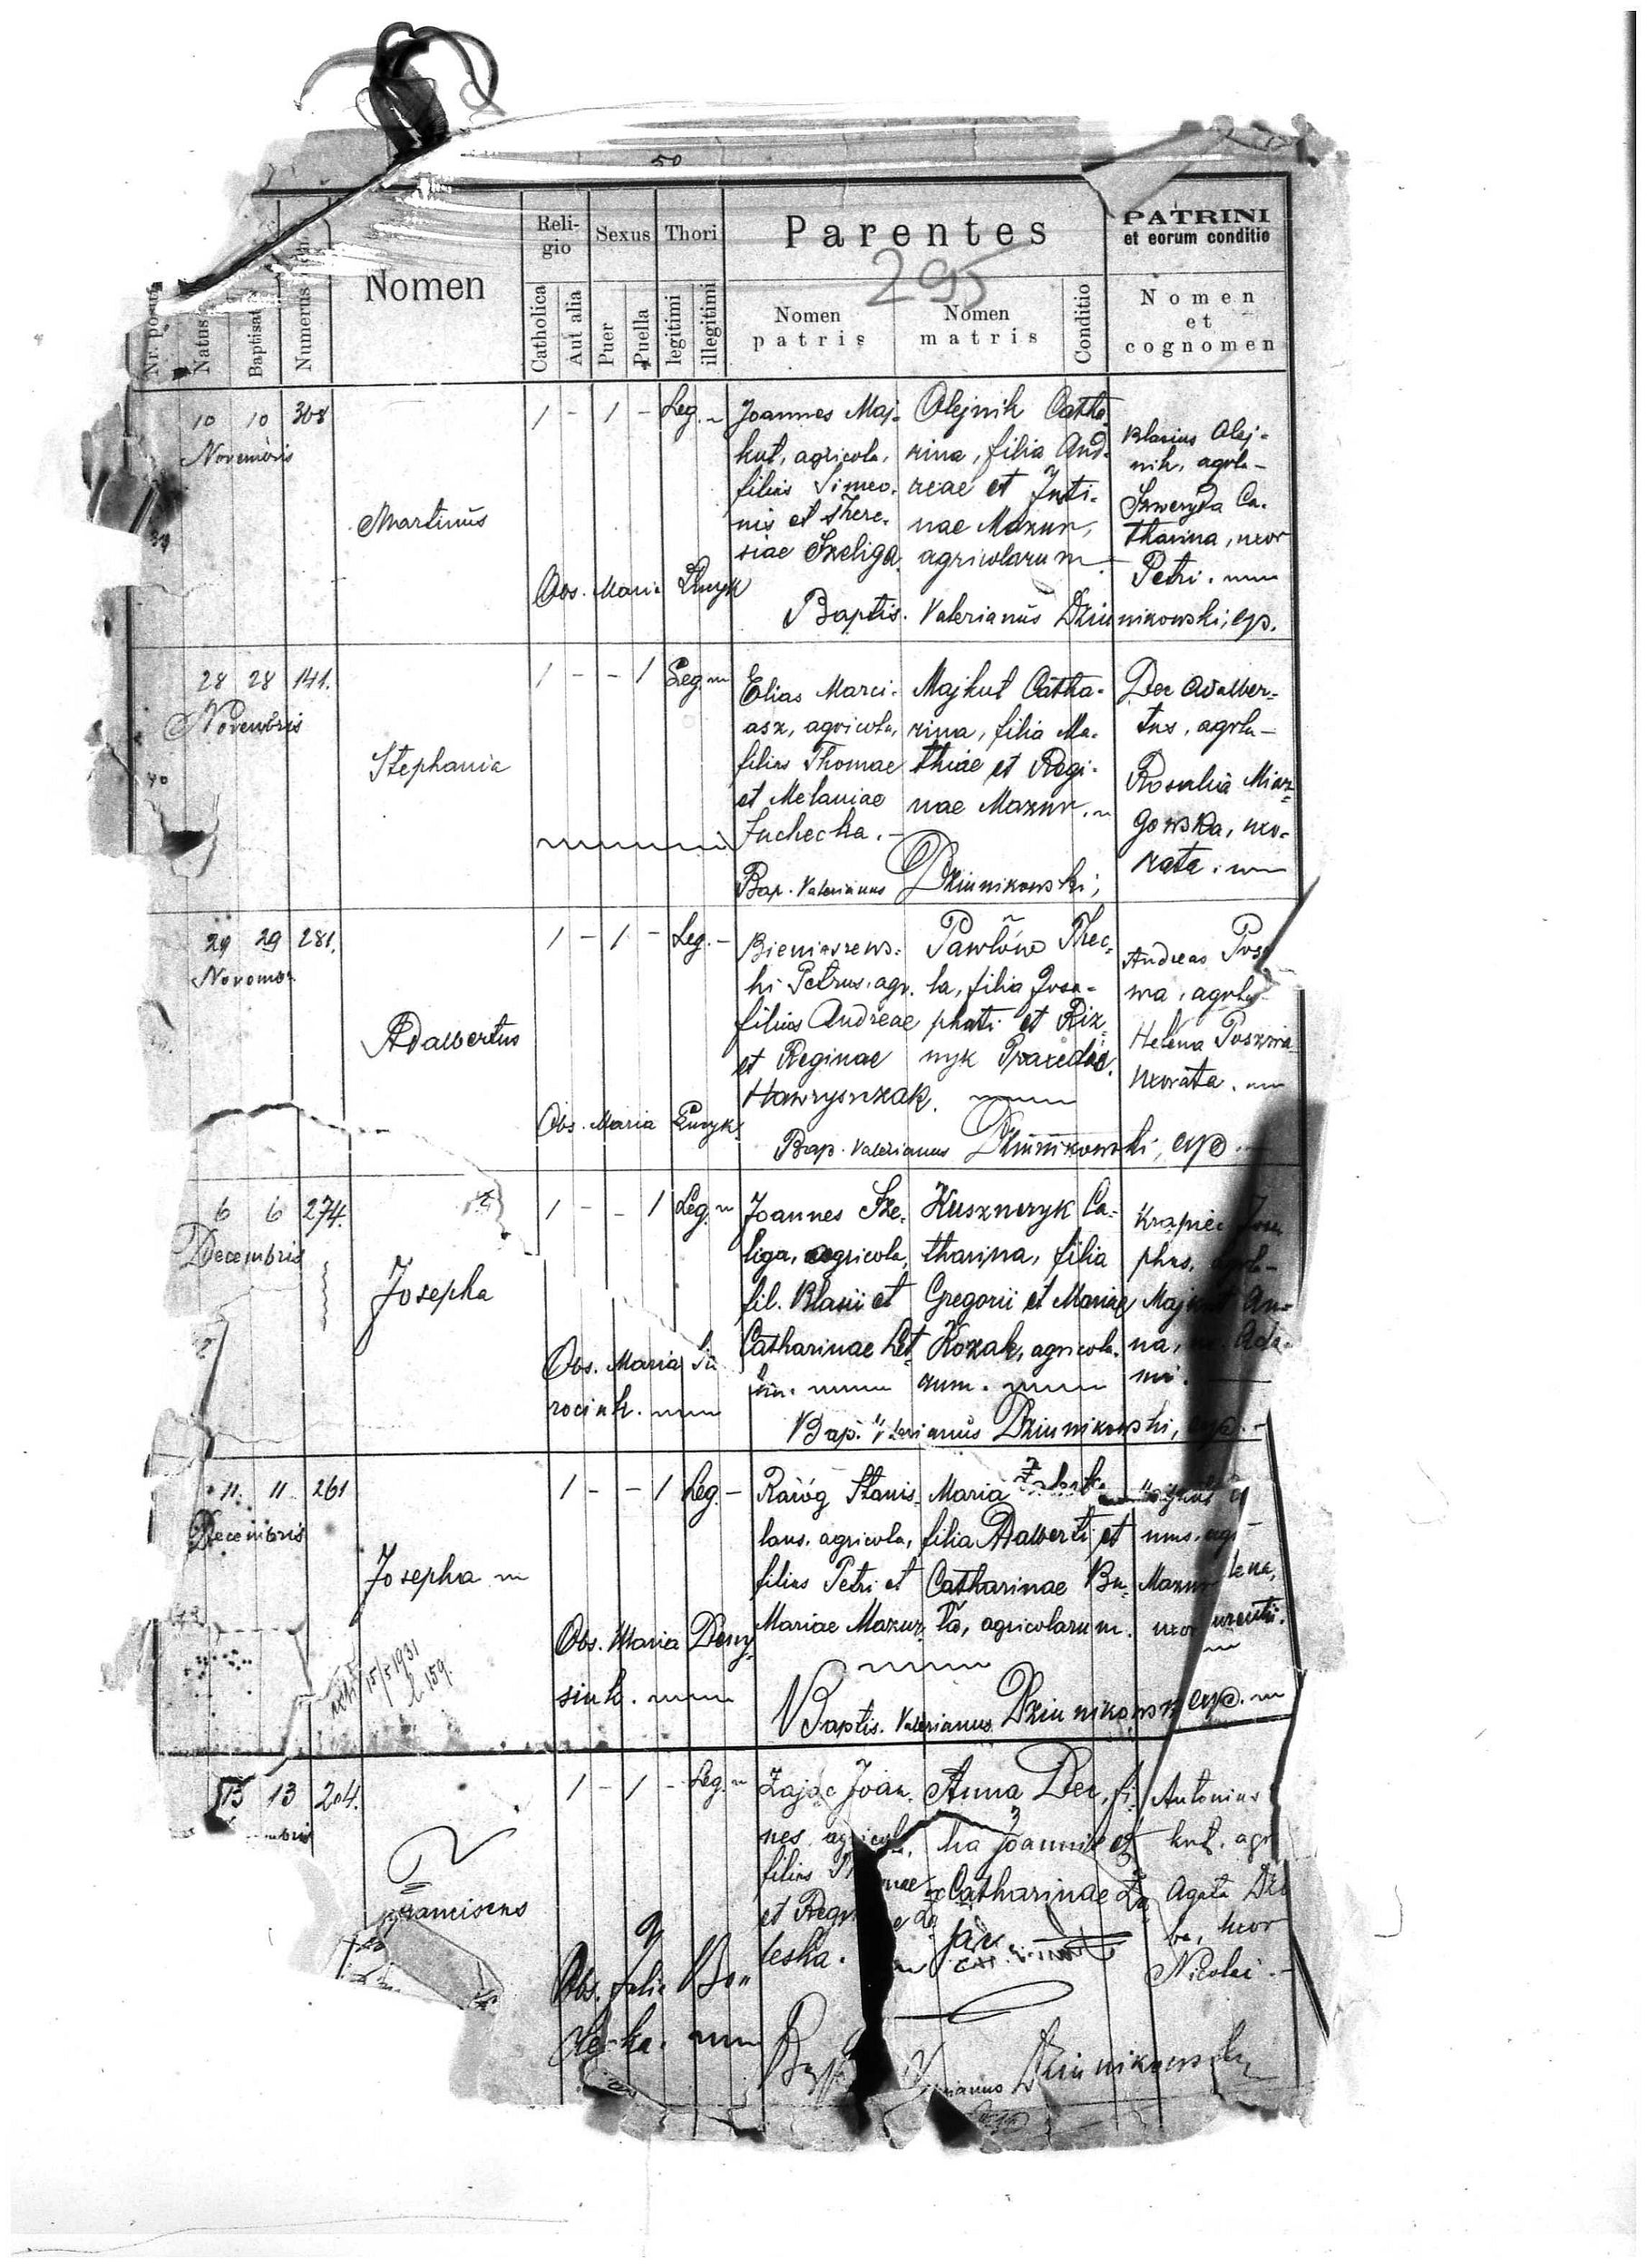 50
Nr. posit
Natus
Baptisat
Numerus
Nomen
Reli-
gio
Catholica
Aut alia
Sexus
Puer
Puella
Thori
legitimi
illegitimi
Parentes
295
Nomen
patris
Nomen
matris
Conditio
PATRINI
et eorum conditio
Nomen
et
cognomen
39
10 10 308
Novembris
Martinus
1 - 1 - Leg.
Joannes Maj-
kut, agricola,
filius Simeo-
nis et There-
siae Szeliga.
Olejnik Catha-
rina, filia And-
reae et Justi-
nae Mazur,
agricolarum
Blasius Olej-
nik, agrla -
Szweryda Ca-
tharina, uxor
Petri.
Obs. Maria
Baptis. Valerianus Dziunikowski, exp.
40
28 28 141.
Novembris
Stephania
1 - - 1 Leg.
Elias Marci-
asz, agricola,
filius Thomae
et Melaniae
Suchecka. -
Majkut Catha-
rina, filia Ma-
thiae et Regi-
nae Mazur.
Dec Adalber-
tus, agrla -
Rosalia Miaz-
gowska, uxo-
rata.
Bap. Valerianus Dziunikowski,
29 29 281.
Novembr.
Adalbertus
1 - 1 - Leg. -
Bieniaszews-
ki Petrus, agr.
filius Andreae
et Reginae
Hawryszczak.
Pawlów Thec-
la, filia Josa-
phati et Riz-
nyk Praxedae.
Andreas
wa, agrla -
Helena
uxorata.
Obs. Maria
Bap. Valerianus Dziunikowski, exp. -
6 6 274.
Decembris
Josepha
1 - - 1 Leg.
Joannes Sze-
liga, agricola,
fil. Blasii et
Catharinae
Kuszneryk Ca-
tharina, filia
Gregorii et Mariae
Kozak, agricola-
rum.
Krapiec Jose
phus, agrla -
Majkut An-
na, ux. Ada-
mi.
Obs. Maria Su
rociak.
Bap. Valerianus Dziunikowski, exp. -
11. 11. 261
Decembris
Josepha
1 - - 1 Leg. -
Raróg Stanis-
laus, agricola,
filius Petri et
Mariae Mazur.
Maria
filia Adalberti et
Catharinae Bu-
ła, agricolarum.
nus, agr
Mazur lena,
uxor urentii.
15/5 1931
L. 159.
Obs. Maria Deny
siuk.
Baptis. Valerianus Dziunikowski exp.
13 13 204.
mbris
Franciscus
1 - 1 - Leg.
Zając Joan-
nes agricola,
filius
et Regi
leska.
Anna Dec, fi-
lia Joannis et
Catharinae Za-
jąc
Antonius
kut, agr
Agata
ba, uxor
Nicolai. -
Obs. Julia
Valerianus Dziunikowski